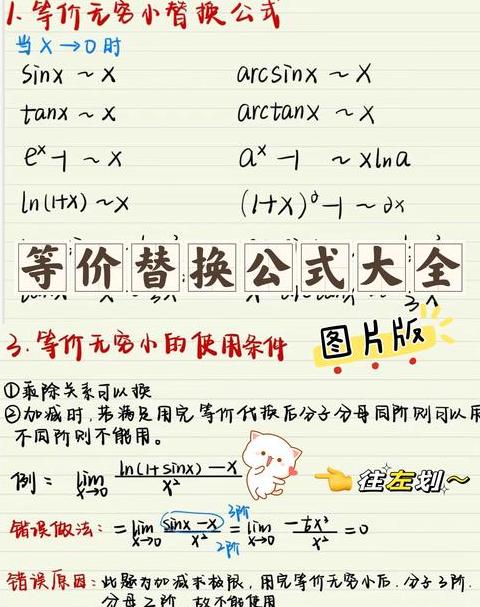 1. 等价无穷小替换公式
当 x→0 时
sinx ~ x arcsinx ~ x
tanx ~ x arctanx ~ x
e^x-1 ~ x a^x-1 ~ xlna
ln(1+x) ~ x (1+x)^a-1 ~ ax
等价替换公式大全
图片版
3. 等价无穷小的使用条件
①乘除关系可以换
②加减时,若满足用完等价代换后分子分母同阶则可以用
不同阶则不能用。
例: lim x→0 (ln(1+sinx)-x)/x²
往左划~
错误做法: = lim x→0 (sinx-x)/x² 3阶 2阶 = lim x→0 (-1/6 x³)/x² = 0
错误原因: 此题为加减求极限,用完等价无穷小后,分子3阶.
分母2阶 故不能使用